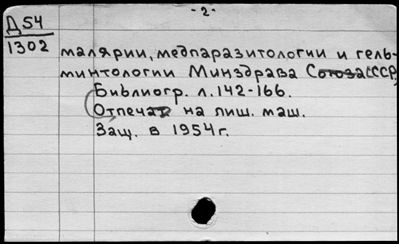 - 2 -
Д54
1302
малярии, медпаразитологии и гель-
минтологии Минздрава Союза СССР.
Библиогр. л. 142-166.
Отпечат на пиш. маш.
Защ. в 1954 г.